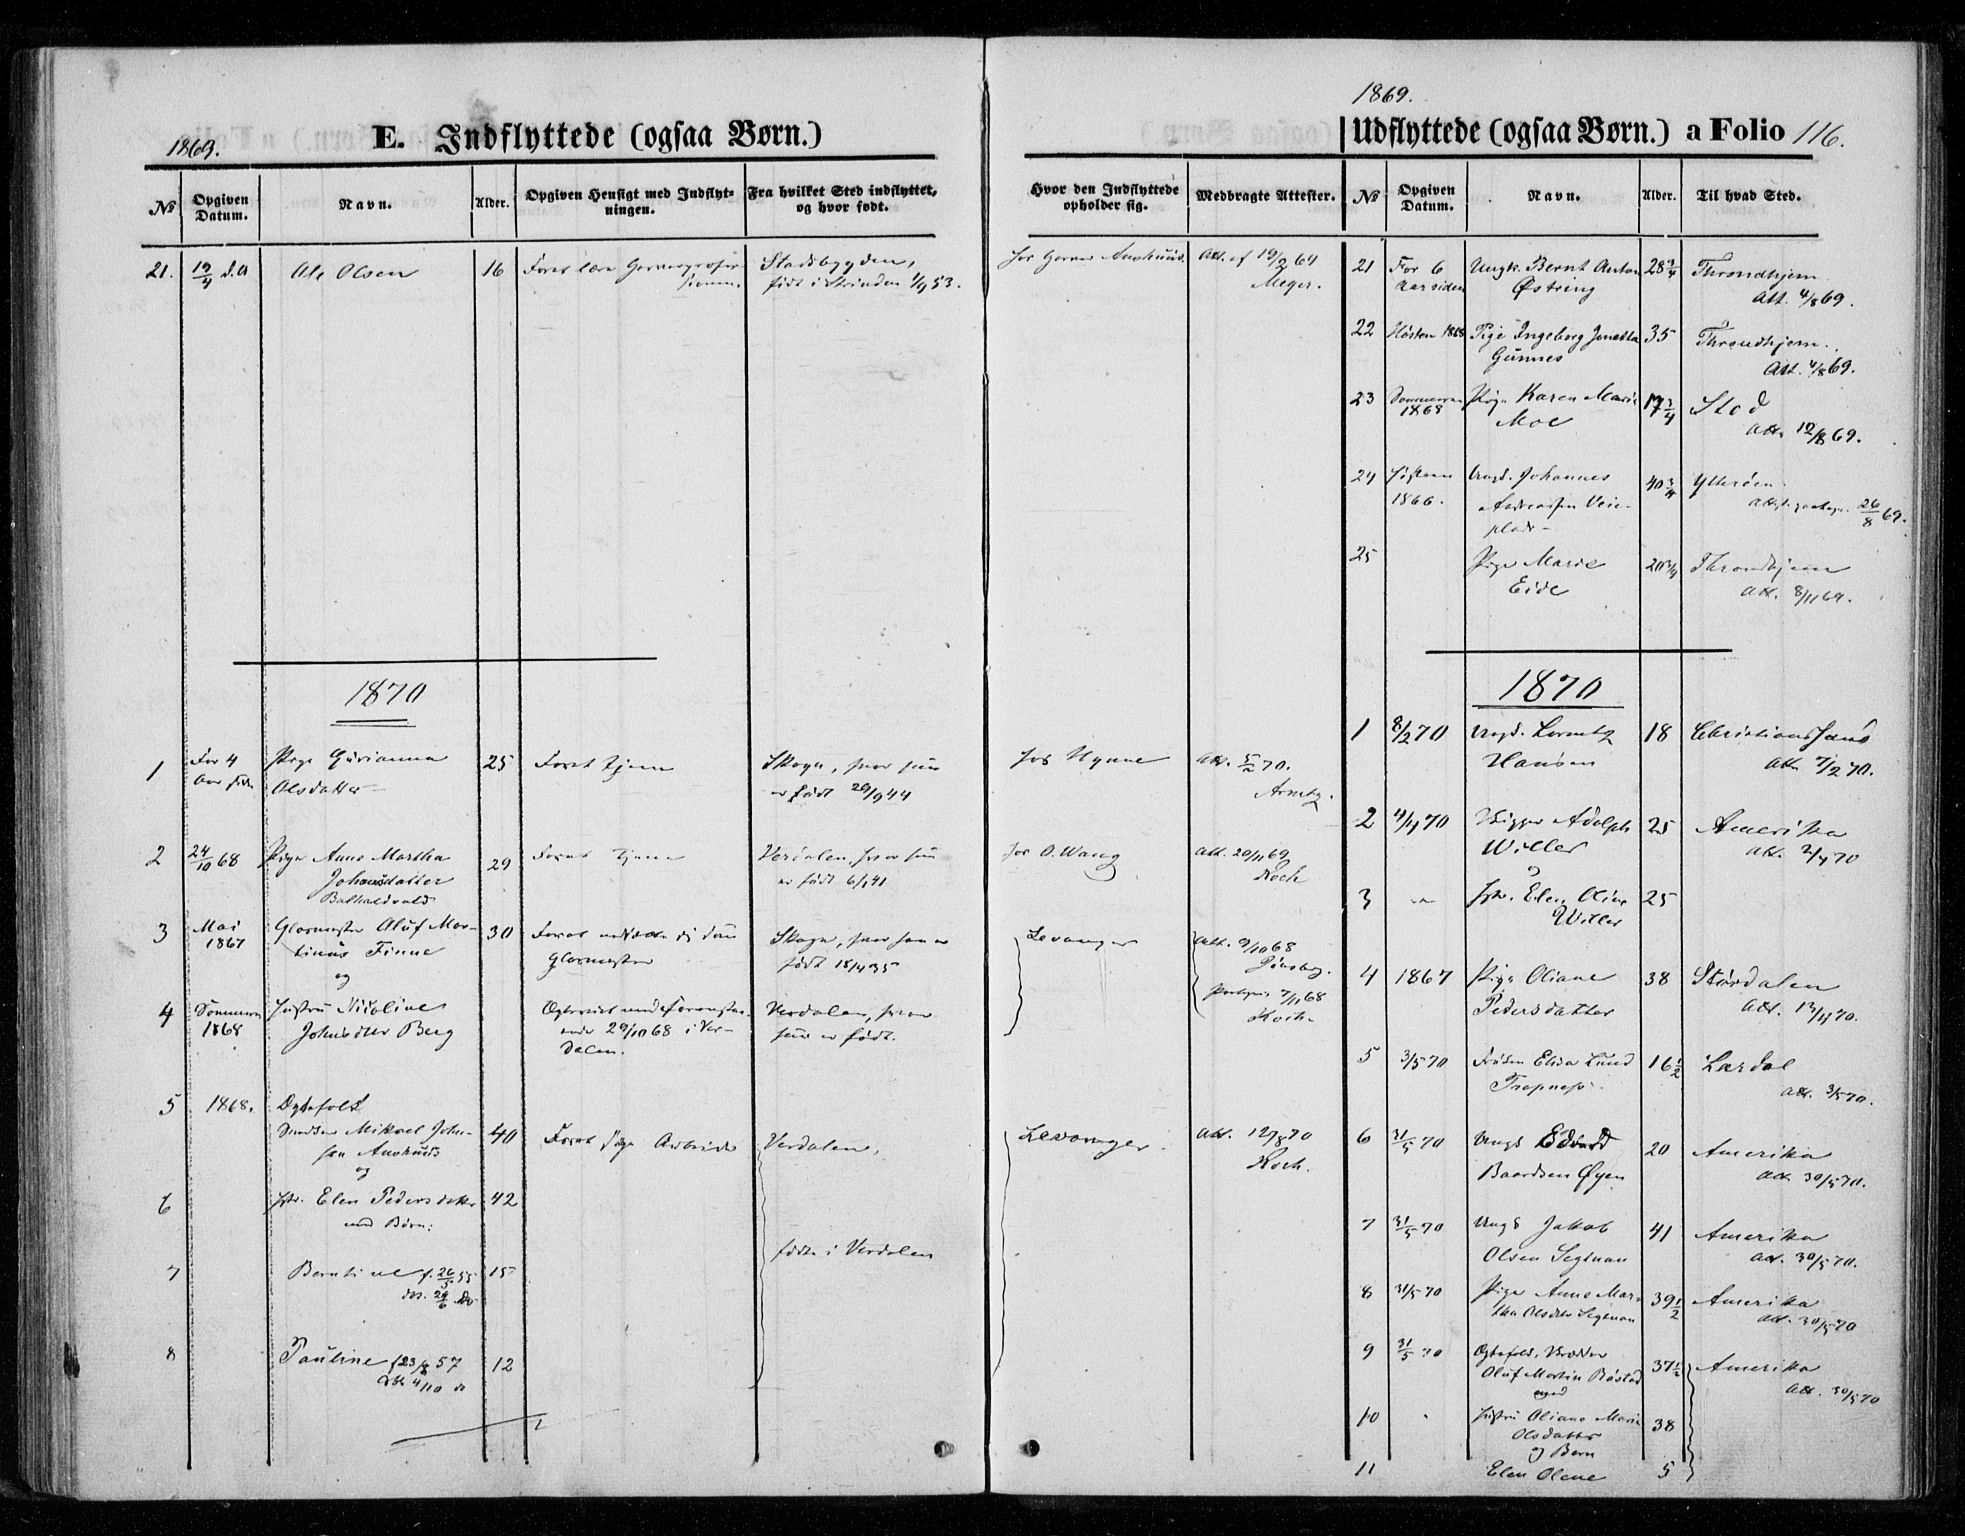 1869.
E. Indflyttede (ogsaa Børn.)
№
Opgiven Datum.
Navn.
Alder.
Opgiven Hensigt med Indflyt-
ningen.
Fra hvilket Sted indflyttet,
og hvor født.
21. 19/4 d.A Ole Olsen 16 Forat lære
Stadsbygden,
født i Strinden 1/9 53.
1870
1 For 4 Pige Gurianna 25 Forat tjene Skogn, hvor hun
Aar siden Olsdatter er født 29/9 44
2 24/10 68 Pige Anne Martha 29 Forat tjene Verdalen, hvor hun
Johansdatter er født 6/1 41
3 Mai Glarmester Oluf Mar- 30 Forat nedsætte sig som Skogn, hvor han er
1867 tinus Finne Glarmester født 18/4 35
og
4 Sommeren Hustru Nicoline Verdalen, hvor
1868 Johnsdter Berg 29/10 68 i Ver- hun er født.
dalen.
5 1868. Ægtefolk
Mikael John- 40 Forat søge Arbeide Verdalen.
sen Aushuus
og
6 Hstr. Elen Pedersdatter 42
med Børn:
født i Verdalen
7 Berntine f. 26/3 55 15
8 Pauline f 23/8 57 12
4/10
1869.
Udflyttede (ogsaa Børn.) a Folio 116.
Hvor den Indflyttede
opholder sig.
Medbragte Attester.
№
Opgiven Datum.
Navn.
Alder.
Til hvad Sted.
hos Garver Aushuus. Att. af 19/2 64
Meyer.
21 For 6 Ungk. Bernt Anton 28 3/4 Throndhjem
Aar siden Østring Att. 4/8 69.
22 Høsten 1868 Pige Ingeborg Jonetta 35 Throndhjem.
Gunnes Att. 4/8 69.
23 Sommeren Pige Karen Marie 17 3/4 Stod
1868 Moe Att. 12/8 69.
24 Høsten Ungk. Johannes 40 3/4 Ytterøen.
1866. Andreassen Veie- 26/8 69.
plads
25 Pige Marie 20 3/4 Throndhjem
Eide Att. 8/11 69.
1870
hos Hynne Att. 5/2 70.
1 8/2 70 Ungk. Lorentz 18 Christianssand
Hansen Att. 7/2 70.
2 4/4 70 Adolph 25 Amerika
Willer Att. 2/4 70
hos O. Wang Att. 20/11 69
Koch
3 Hstr. Elen Oline 25
Willer
Levanger Att. 9/10 68
7/11 68
Koch.
4 1867 Pige Oliane 38 Størdalen
Pedersdatter Att. 13/4 70.
5 3/5 70 Frøken Elisa Lund 16 1/2 Lardal
Trapnes. Att. 3/5 70.
Levanger. Att. 12/8 70
Koch.
6 31/5 70 Ungk Edvard 20 Amerika
Baardsen Øyen Att. 30/5 70.
7 31/5 70 Ungk Jakob 41 Amerika
Olsen Segtnan Att. 30/5 70.
8 31/5 70 Pige Anne Mar- 39 1/2 Amerika
tha Olsdtr Segtnan Att. 30/5 70
9 31/5 70 Ægtefolk, 37 1/2 Amerika
Oluf Martin Røstad Att. 30/5 70
med
10 Hustru Oliane Marie 38
Olsdatter
og Børn
11 Elen Olene 5